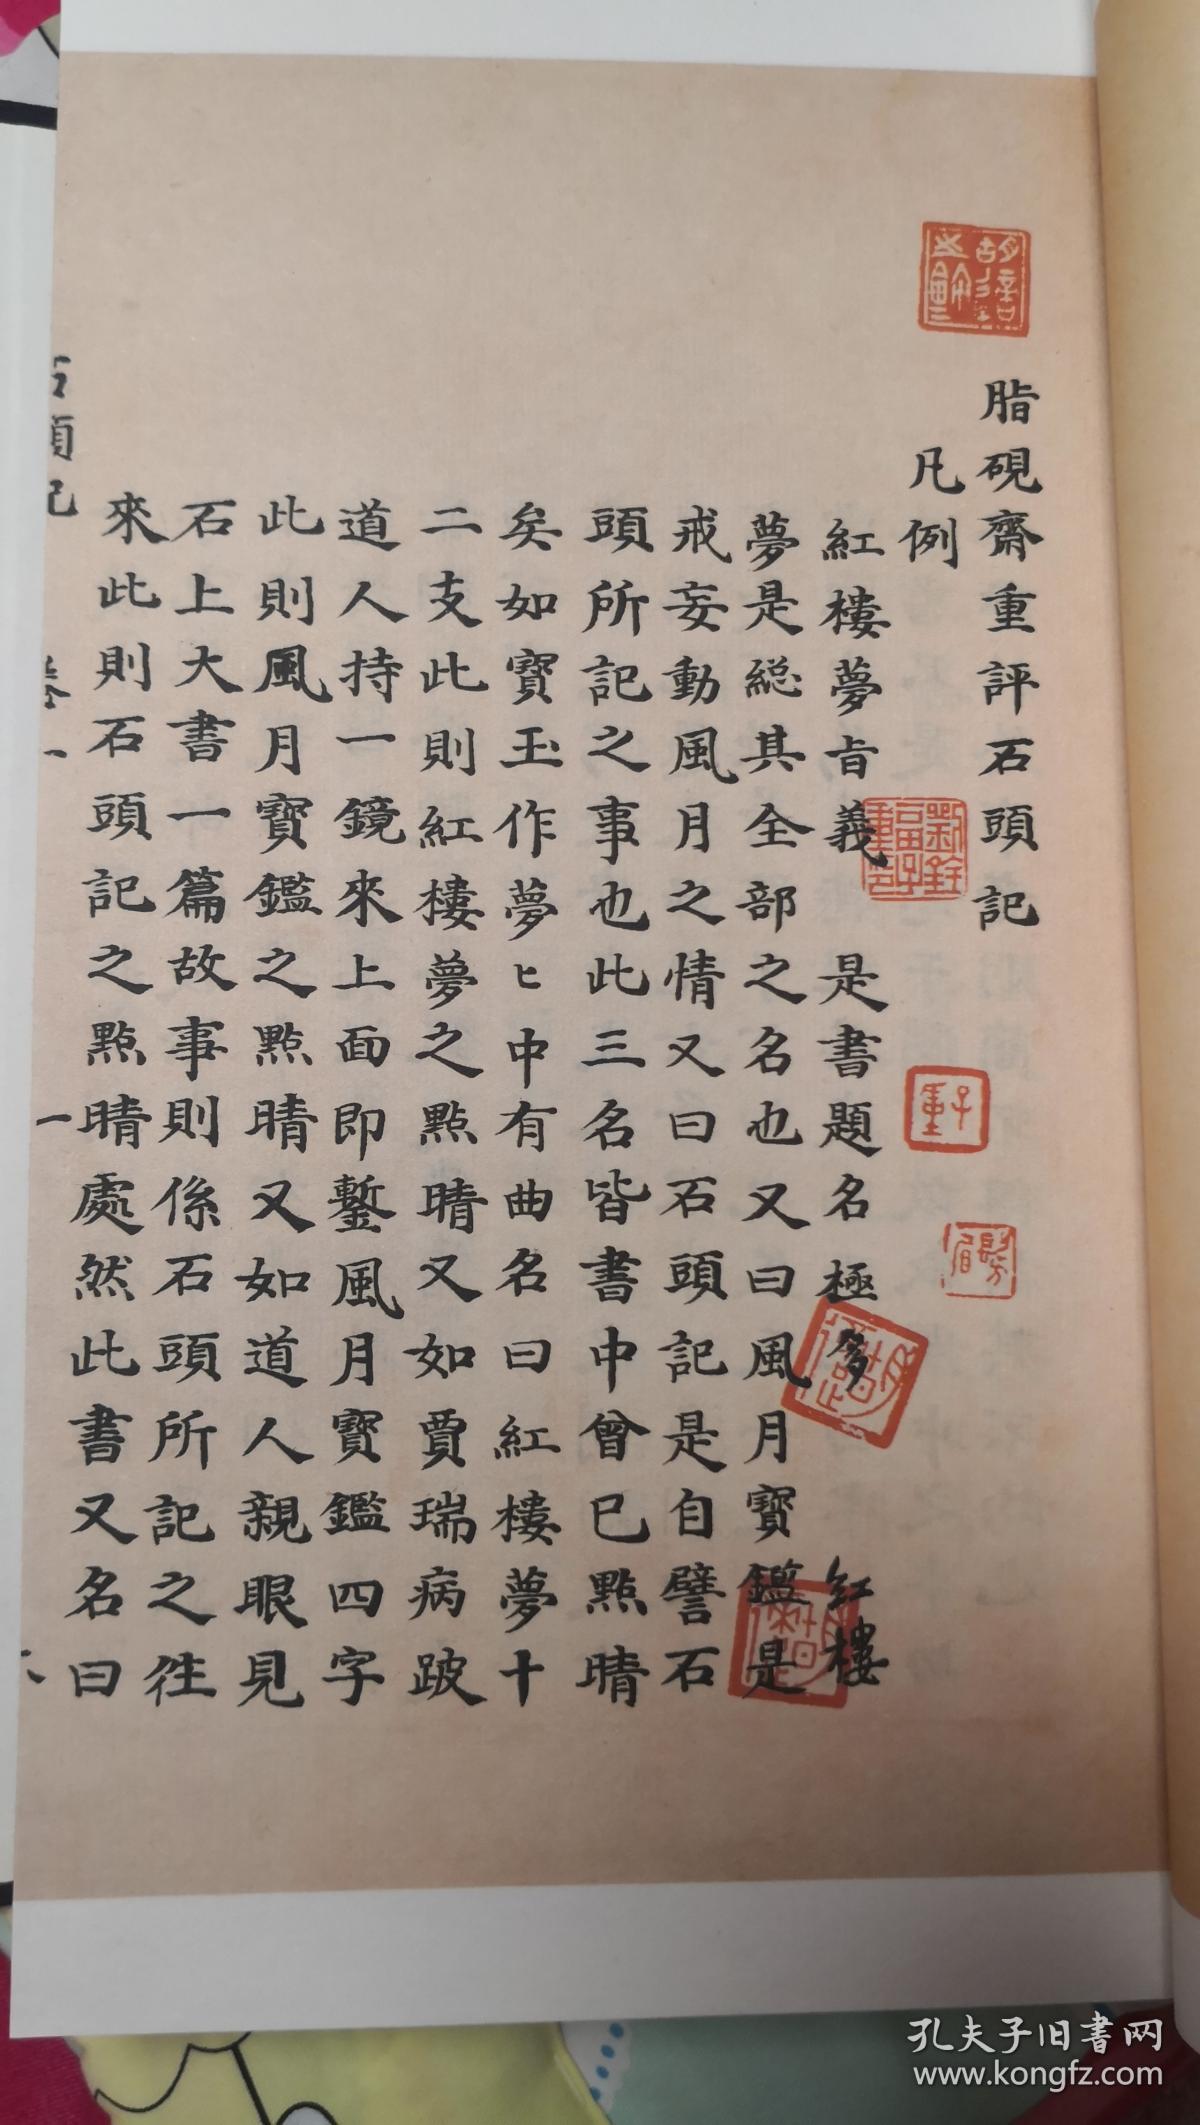 脂硯齋重評石頭記
凡例
紅樓夢旨義 是書題名極多 紅樓
夢是総其全部之名也又曰風月寶鑑是
戒妄動風月之情又曰石頭記是自譬石
頭所記之事也此三名皆書中曾已點晴
矣如寶玉作夢ヒ中有曲名曰紅樓夢十
二支此則紅樓夢之點晴又如賈瑞病跛
道人持一鏡來上面即鏨風月寶鑑四字
此則風月寶鑑之點晴又如道人親眼見
石上大書一篇故事則係石頭所記之徃
來此則石頭記之點晴處然此書又名曰
石頭記 卷一 一
劉銓福子重印
子重
髣眉
孔夫子旧书网
www.kongfz.com